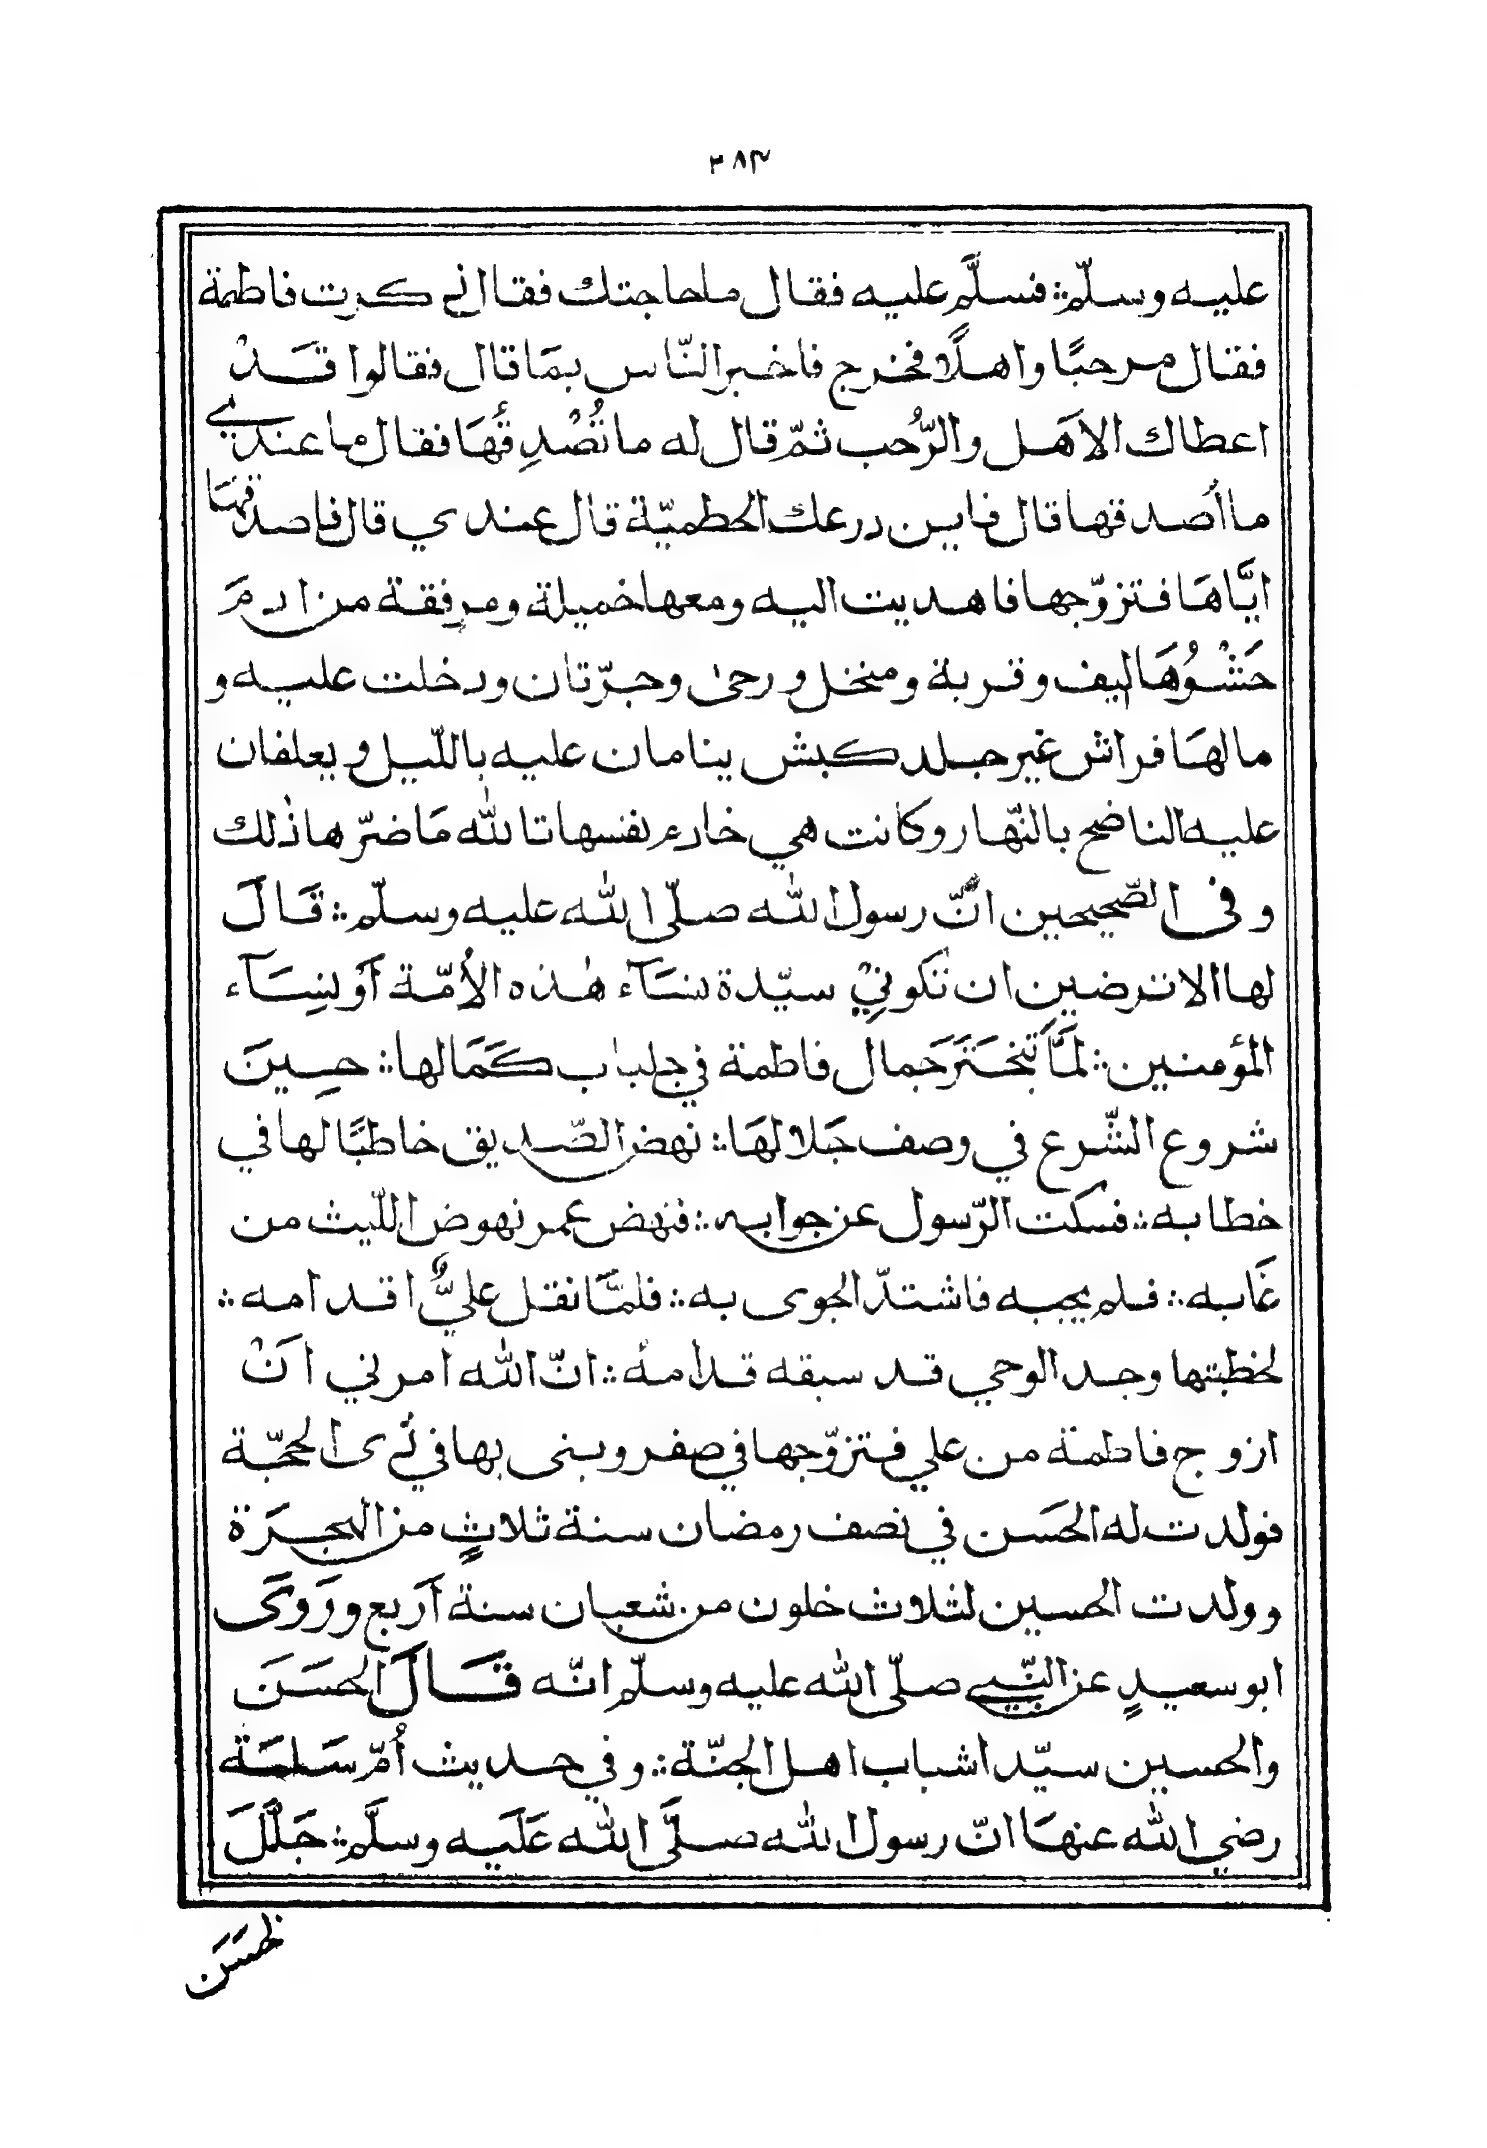 ٣٨٤
عليه وسلّم؞ فسلَّم عليه فقال ما حاجتك فقال ذكرت فاطمة
فقال مرحبًا واهلًا فخرج فاخبر النّاس بمَا قال فقالوا قَدْ
اعطاك الاَهل والرُّحب ثمّ قال له ما تُصْدِقُهَا فقال ما عندي
ما أُصدقها قال فاين درعك الحطميّة قال عندي قال فاصدقهَا
ايَّاهَا فتزوّجها فاهديت اليه ومعها خميلة ومرفقة من ادمَ
حَشْوُهَا ليف وقربة ومنخل ورحى وجرّتان ودخلت عليه و
ما لهَا فراش غير جلد كبش ينامان عليه بالليل ويعلفان
عليه الناضح بالنّهار وكانت هي خادم نفسها تالله مَا ضرّها ذٰلك
وفي الصّحيحين انّ رسول الله صلّى الله عليه وسلّم؞ قَالَ
لها الا ترضين ان تكونِيْ سيّدة نسَآء هٰذه الأُمّة أَوْ نِسَآء
المؤمنين؞ لمَّا تَبَخْتَرَ جَمال فاطمة في جلباب كَمَالها؞ حِينَ
شروع الشّرع في وصف جَلالهَا؞ نهض الصّديق خاطبًا لها في
خطابه؞ فسكت الرّسول عن جوابه؞ فنهض عمر نهوض الليث من
غَابه؞ فلم يجبه فاشتدّ الجوى به؞ فلمَّا نقل عليٌّ اقدامه؞
لخطبتها وجد الوحي قد سبقه قدّامه؞ انّ الله امرني اَنْ
ازوج فاطمة من علي فتزوّجها في صفر وبنى بها في ذى الحجّة
فولدت له الحَسن في نصف رمضان سنة ثلاثٍ من الهجرَة
وولدت الحسين لثلاث خلون من شعبان سنة أربع وروَى
ابو سعيدٍ عن النّبي صلّى الله عليه وسلّم انّه قَالَ الحَسَن
والحسين سيّدا شباب اهل الجنّة؞ وفي حديث أُمّ سَلمَة
رضي الله عنهَا انّ رسول الله صلَّى الله عَلَيه وسلَّم؞ جَلَّلَ
لحسَن